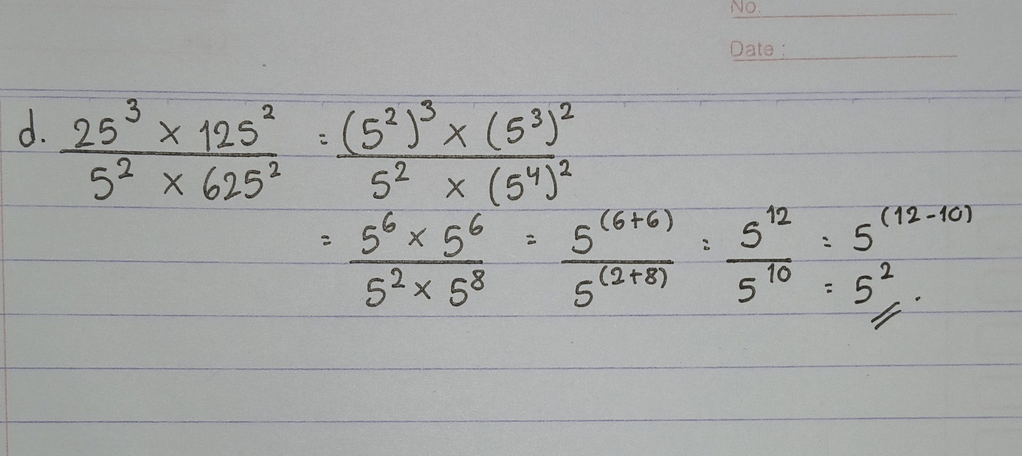 No.
Date :
d. 25³ × 125² / 5² × 625² = (5²)³ × (5³)² / 5² × (5⁴)²
= 5⁶ × 5⁶ / 5² × 5⁸ = 5⁽⁶⁺⁶⁾ / 5⁽²⁺⁸⁾ = 5¹² / 5¹⁰ = 5⁽¹²⁻¹⁰⁾
= 5² .